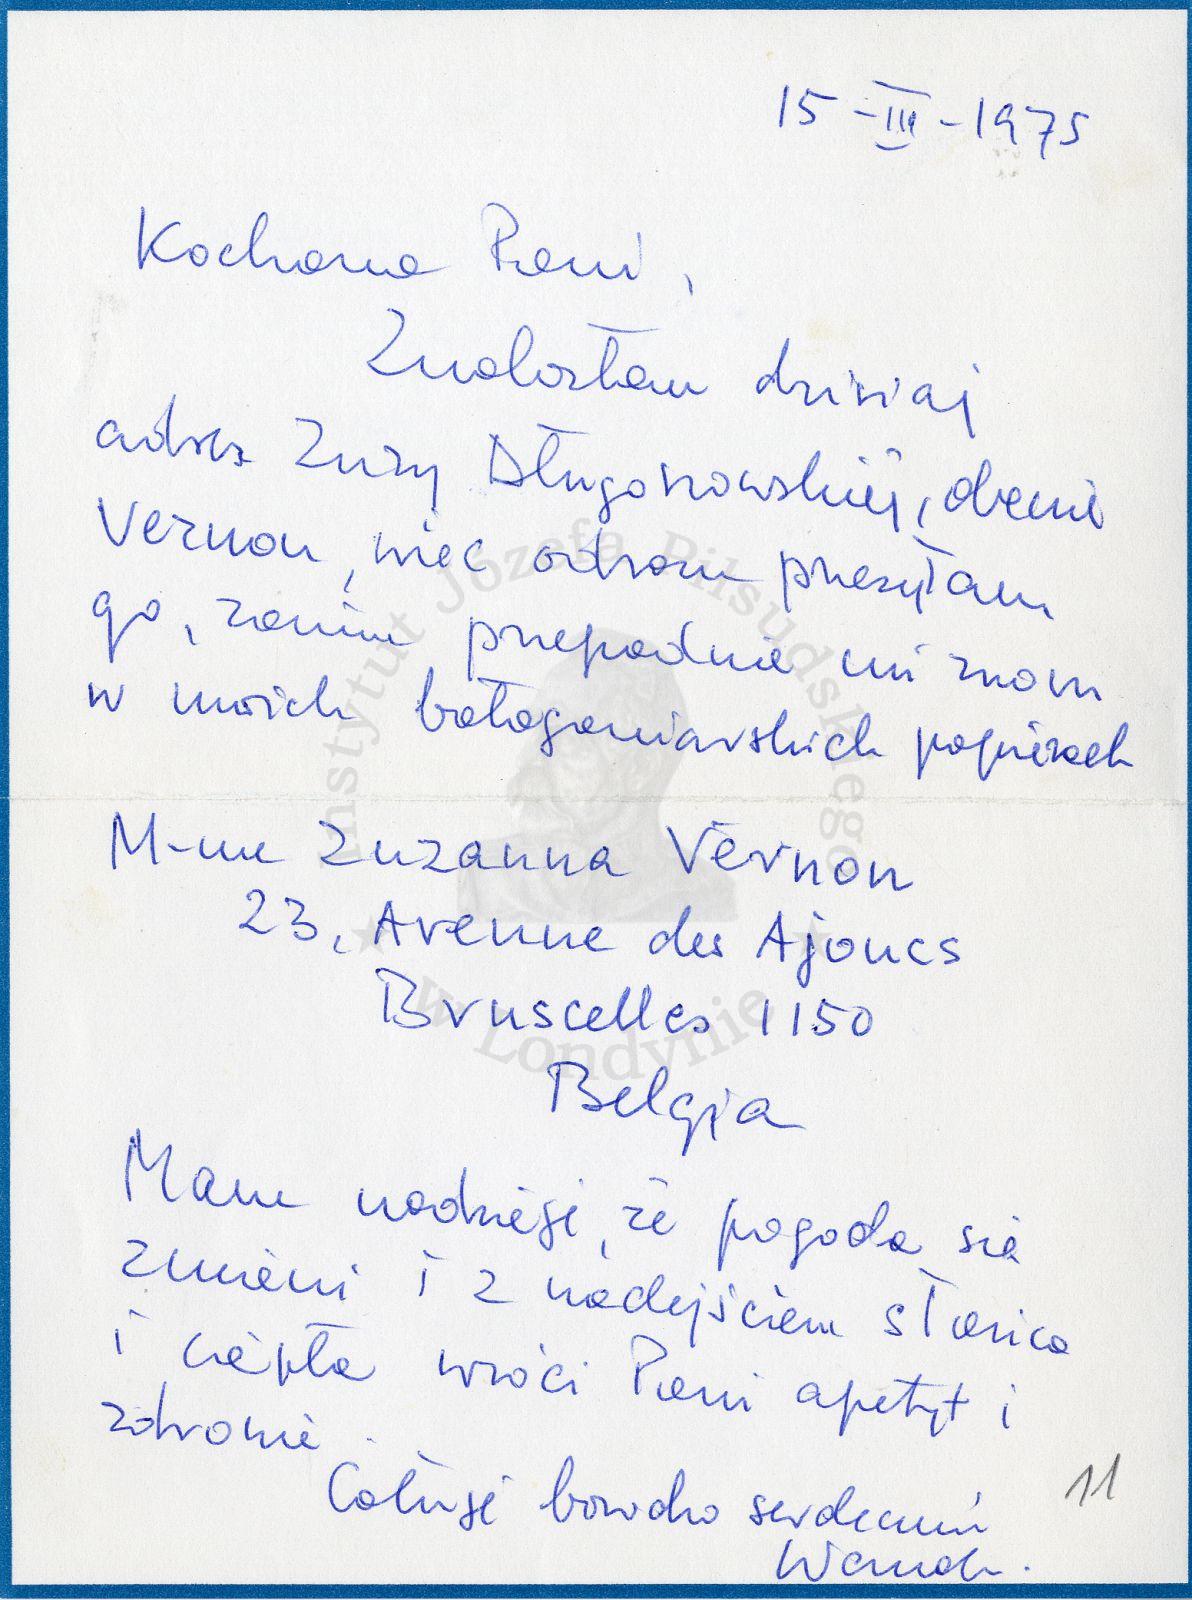 15-III-1975
Kochana Pani,
Znalazłam dzisiaj
adres Zuzy Długoszowskiej, obecnie
Vernon, więc odrazu przesyłam
go, zanim przepadnie mi znow
w moich bałaganiarskich papierach
M-me Zuzanna Vernon
23, Avenue des Ajoncs
Bruscelles 1150
Belgia
Mam nadzieję, że pogoda się
zmieni i z nadejściem słońca
i ciepła wróci Pani apetyt i
zdrowie.
Całuję bardzo serdecznie
Wanda.
11
Instytut Józefa Piłsudskiego
w Londynie